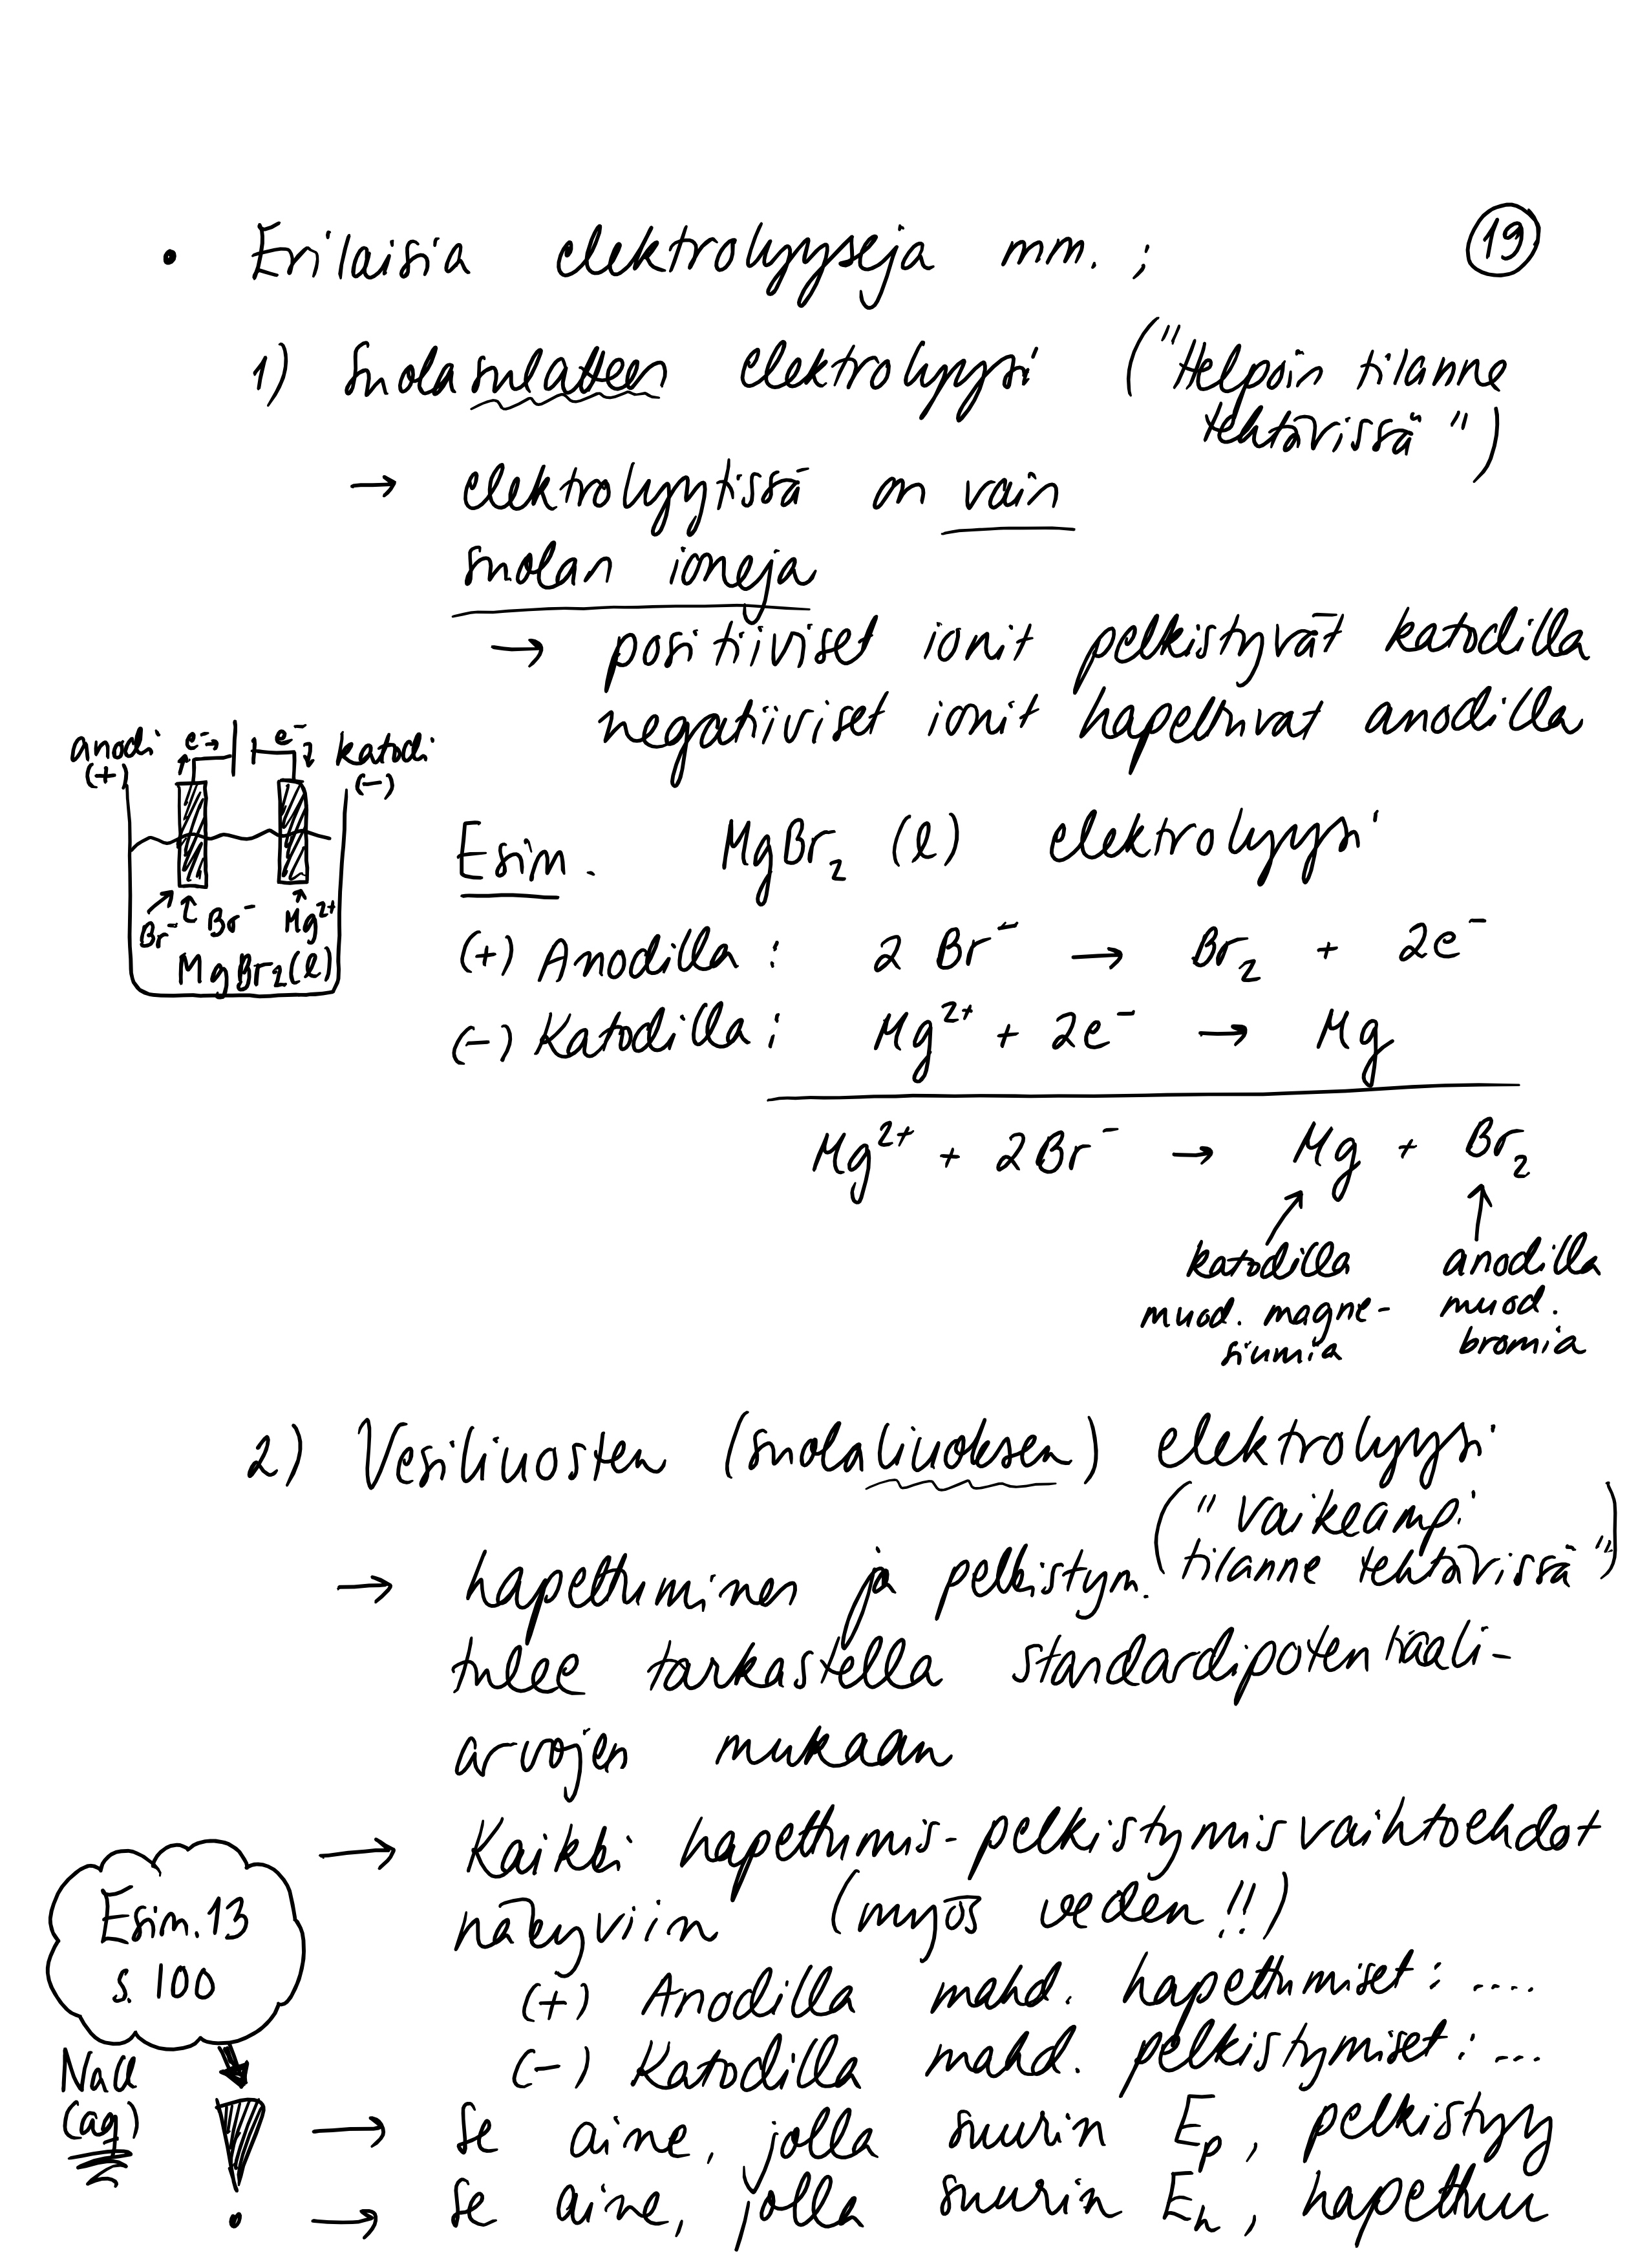 19
• Erilaisia elektrolyysejä mm. ;
1) Suolasulatteen elektrolyysi ("Helpoin tilanne
tehtävissä")
→ elektrolyytissä on vain
suolan ioneja
→ positiiviset ionit pelkistyvät katodilla
negatiiviset ionit hapettuvat anodilla
anodi e⁻→ e⁻ katodi
(+) (−)
Br⁻ Br⁻ Mg²⁺
MgBr₂(l)
Esim. MgBr₂ (l) elektrolyysi
(+) Anodilla : 2 Br⁻ → Br₂ + 2e⁻
(−) Katodilla : Mg²⁺ + 2e⁻ → Mg
Mg²⁺ + 2Br⁻ → Mg + Br₂
katodilla
muod. magne-
siumia
anodilla
muod.
bromia
2) Vesiliuosten (suolaliuoksen) elektrolyysi
("vaikeampi
tilanne tehtävissä")
→ hapettuminen ja pelkistym.
tulee tarkastella standardipotentiaali-
arvojen mukaan
→ Kaikki hapettumis-pelkistymisvaihtoehdot
näkyviin (myös veden !!)
(+) Anodilla mahd. hapettumiset : ....
(−) Katodilla mahd. pelkistymiset : ...
Esim. 13
s. 100
NaCl
(aq)
→ Se aine, jolla suurin Eₚ, pelkistyy
→ Se aine, jolla suurin Eₕ, hapettuu